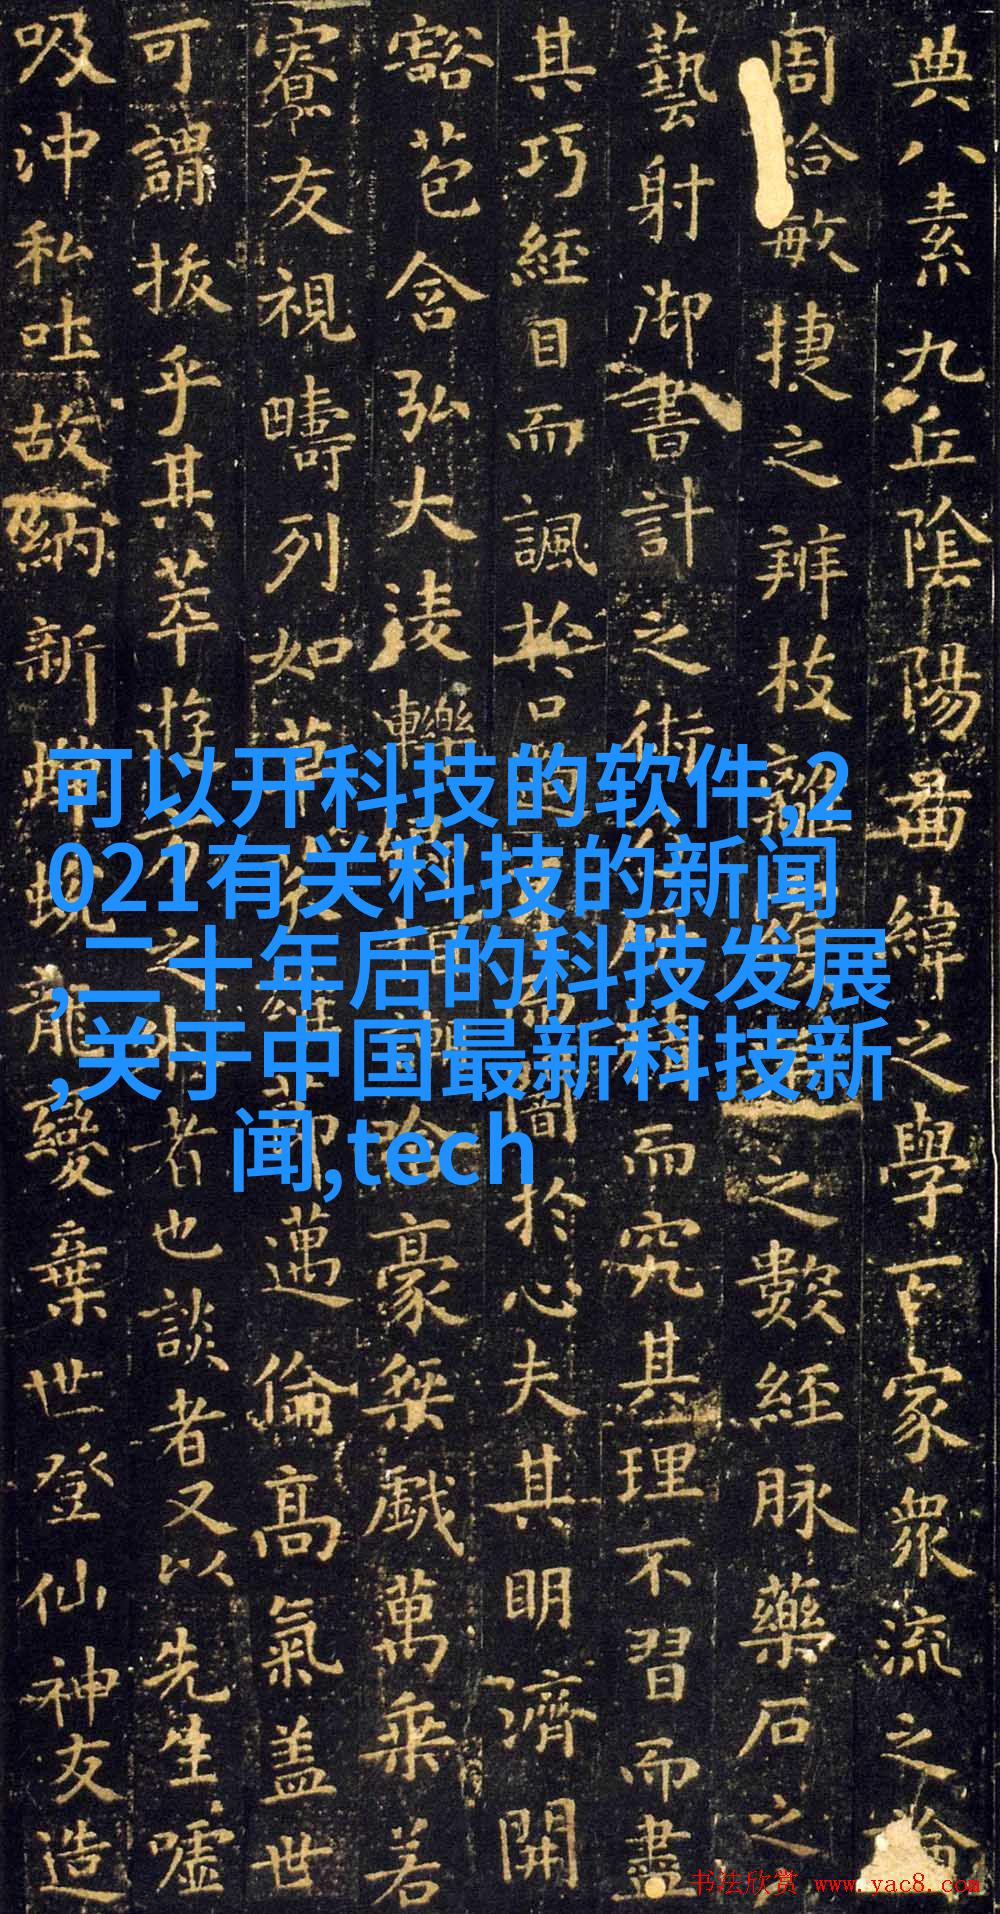 典八素九丘陰陽啚緯之學百家衆流之論
周給敏捷之辨枝離之數經脉藥石之
藝射御書計之術而究其理不習而盡
其巧經目而諷於口闇於心夫其明濟開
豁苞含弘大淩轢豪桀戲萬乘若
寮友視疇列如草邁倫高氣盖世
可謂拔乎其萃遊方之外者也談者又以先生噓
吸沖和吐故納新蟬蛻龍變棄世登仙神友造
可以开科技的软件,2
021有关科技的新闻
,二十年后的科技发展
,关于中国最新科技新
闻,tech
书法欣赏 www.yac8.com